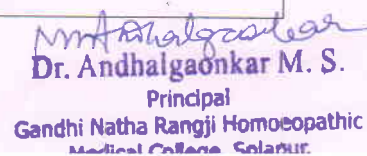 Dr. Andhalgaonkar M. S.
Principal
Gandhi Natha Rangji Homoeopathic
Medical College, Solapur.